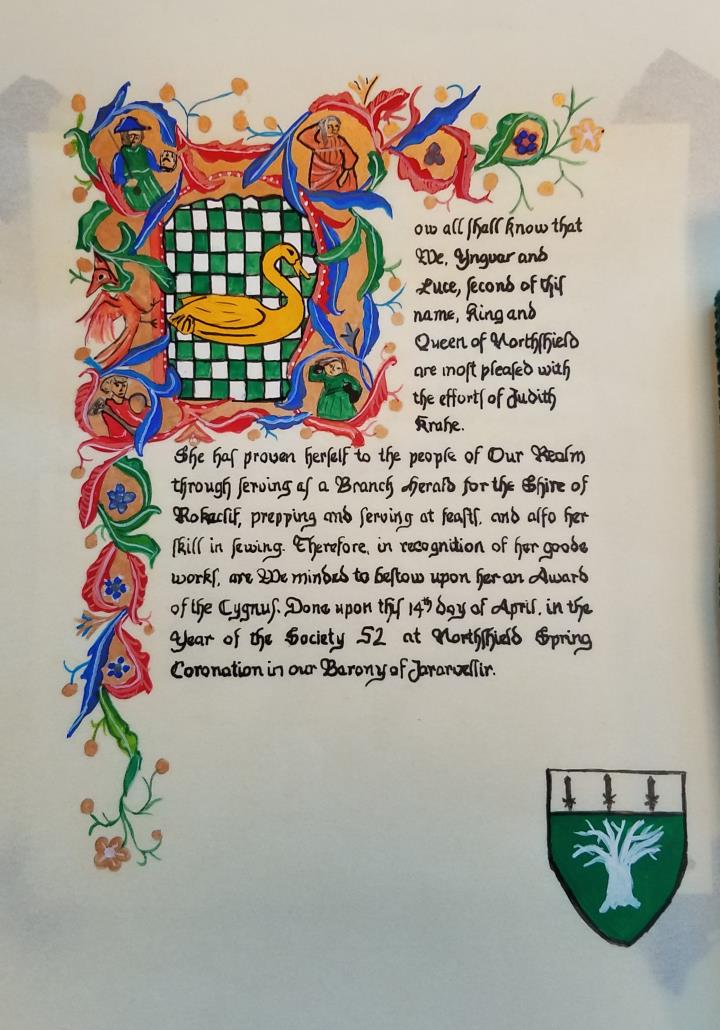 ow all ſhall know that
We, Yngvar and
Luce, ſecond of thiſ
name, King and
Queen of Northſhield
are moſt pleaſed with
the effortſ of Judith
Krahe.
She haſ proven herſelf to the people of Our Realm
through ſerving aſ a Branch Herald for the Shire of
Rokeclif, prepping and ſerving at feaſtſ, and alſo her
ſkill in ſewing. Therefore, in recognition of her goode
workſ, are We minded to beſtow upon her an Award
of the Cygnuſ. Done upon thiſ 14th day of April, in the
Year of the Society 52 at Northſhield Spring
Coronation in our Barony of Jararvellir.